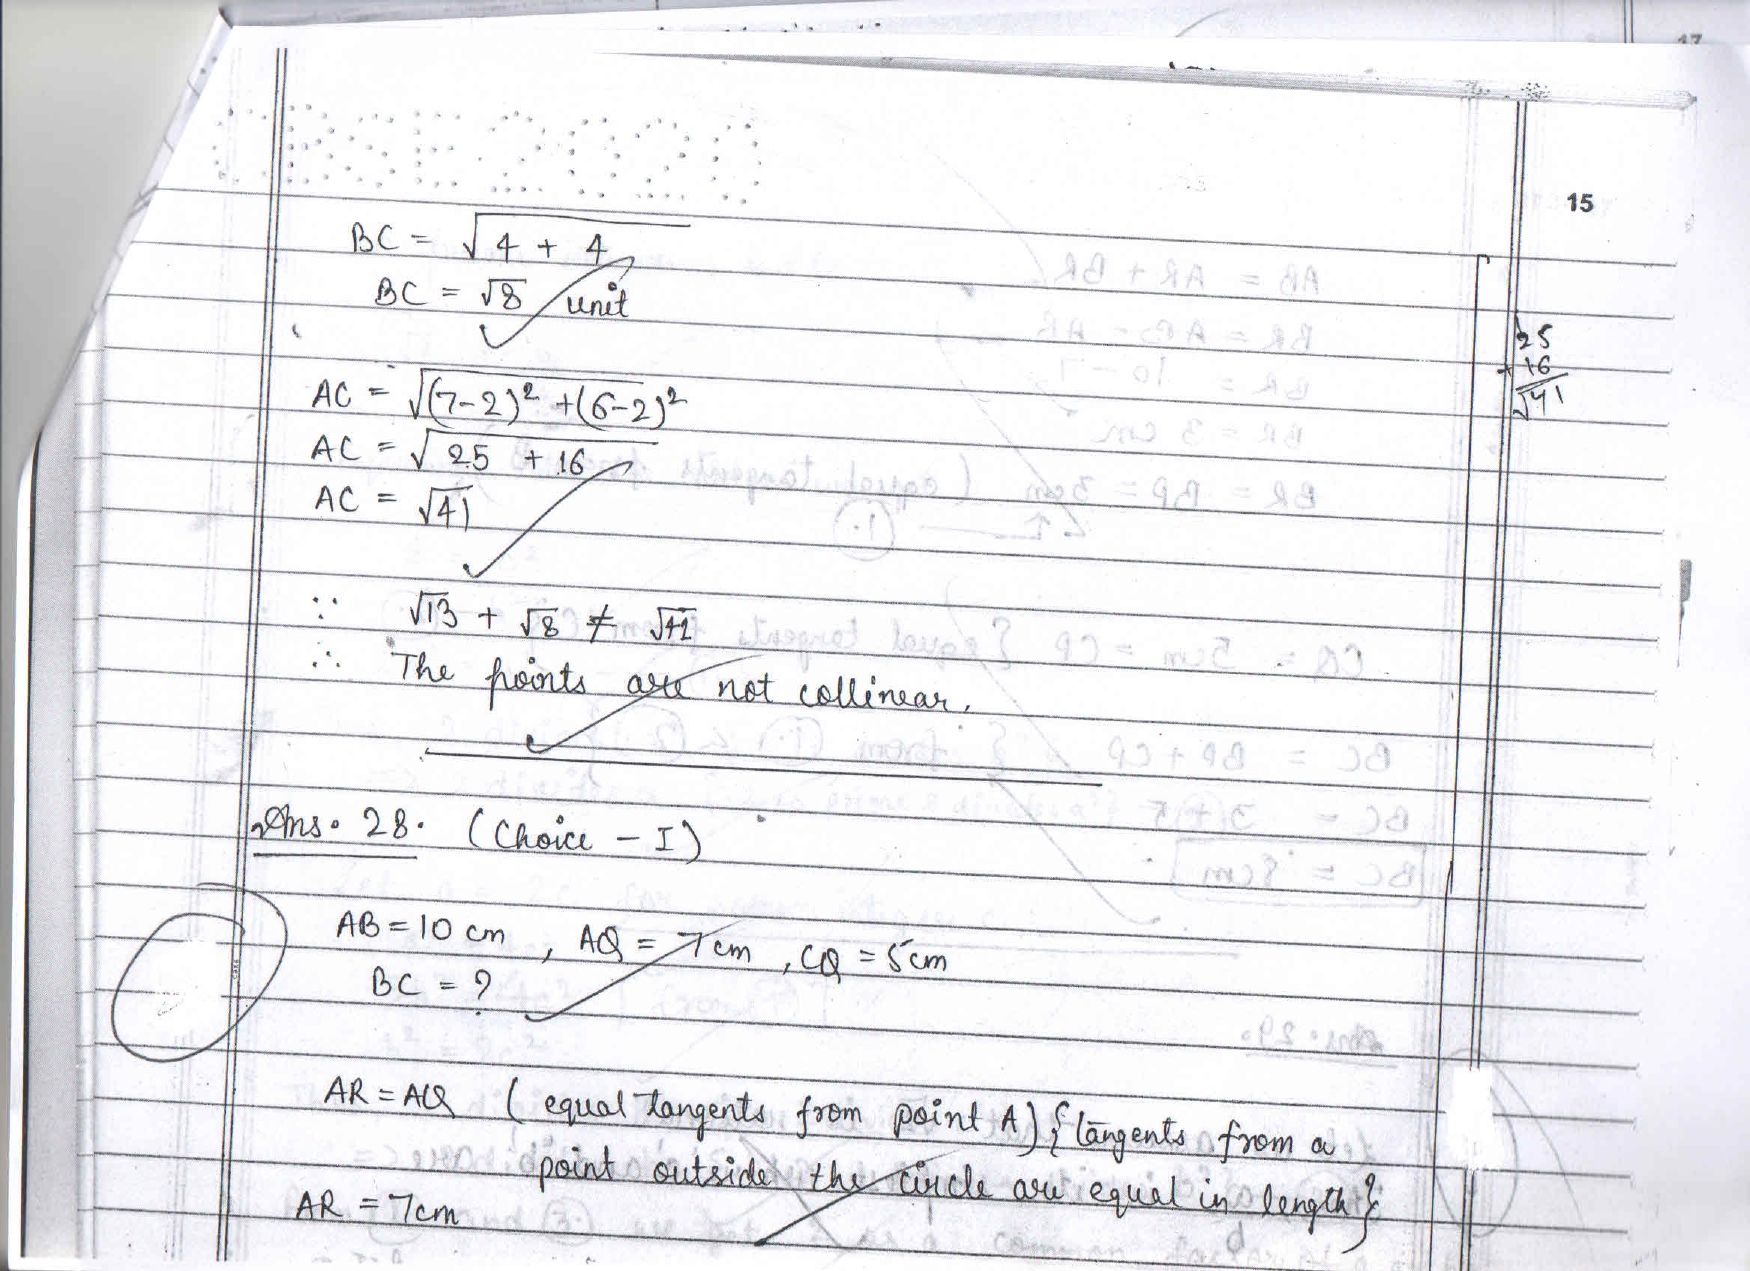 CBSE 2020
15
BC = √4 + 4
BC = √8 unit
25
+ 16
√41
AC = √(7-2)² + (6-2)²
AC = √25 + 16
AC = √41
∵ √13 + √8 ≠ √41
∴ The points are not collinear.
Ans. 28. (Choice - I)
AB = 10 cm, AQ = 7 cm, CQ = 5 cm
BC = ?
AR = AQ (equal tangents from point A) {tangents from a
point outside the circle are equal in length}
AR = 7cm